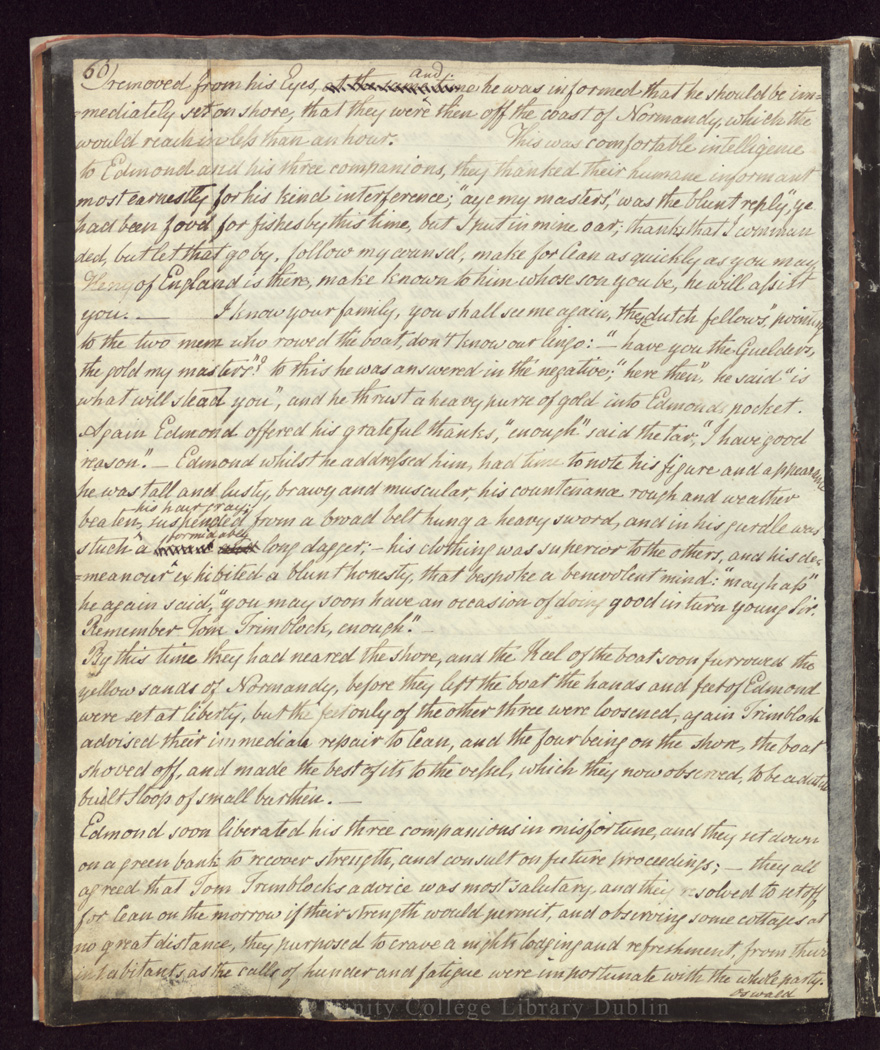 60)
removed from his Eyes, at the same time and he was informed that he should be im=
=mediately set on shore, that they were then off the coast of Normandy, which the
would reach in less than an hour. This was comfortable intelligence
to Edmond and his three companions, they thanked their humane informant
most earnestly for his kind interference; "aye my masters," was the blunt reply, "ye
had been food for fishes by this time, but I put in mine oar; thanks that I comman
ded, but let that go by, follow my counsel, make for Cean as quickly as you may
Henry of England is there, make known to him whose son you be, he will assist
you. — I know your family, you shall see me again, these dutch fellows", pointing
to the two men who rowed the boat, don't know our lingo: — "have you the Guelders,
the gold my masters"? to this he was answered in the negative; "here then", he said "is
what will stead you", and he thrust a heavy purse of gold into Edmonds pocket.
Again Edmond offered his grateful thanks, "enough" said the tar, "I have good
reason". — Edmond whilst he addressed him, had time to note his figure and appearance
he was tall and lusty, brawy and muscular, his countenance rough and weather
beaten, his hair gray; suspended from a broad belt hung a heavy sword, and in his gurdle was
stuch a formidable long dagger; — his clothing was superior to the others, and his de=
=meanour exhibited a blunt honesty, that bespoke a benevolent mind: "may hass"
he again said, "you may soon have an occasion of doing good in turn young Sir.
Remember Tom Trimblock, enough". —
By this time they had neared the shore, and the Keel of the boat soon furrowed the
yellow sands of Normandy, before they left the boat the hands and feet of Edmond
were set at liberty, but the feet only of the other three were loosened, again Trimblock
advised their immediate repair to Cean, and the four being on the shore, the boat
shoved off, and made the best of its to the vessel, which they now observed, to be a dutch
built Sloop of small burthen. —
Edmond soon liberated his three companions in misfortune, and they set down
on a green bank to recover strength, and consult on future proceedings; — they all
agreed that Tom Trimblocks advice was most salutary, and they resolved to set off
for Cean on the morrow if their strength would permit, and observing some cottages at
no great distance, they purposed to crave a nights lodging and refreshment, from their
inhabitants, as the calls of hunder and fatigue were importunate with the whole party.
Oswald
Trinity College Library Dublin